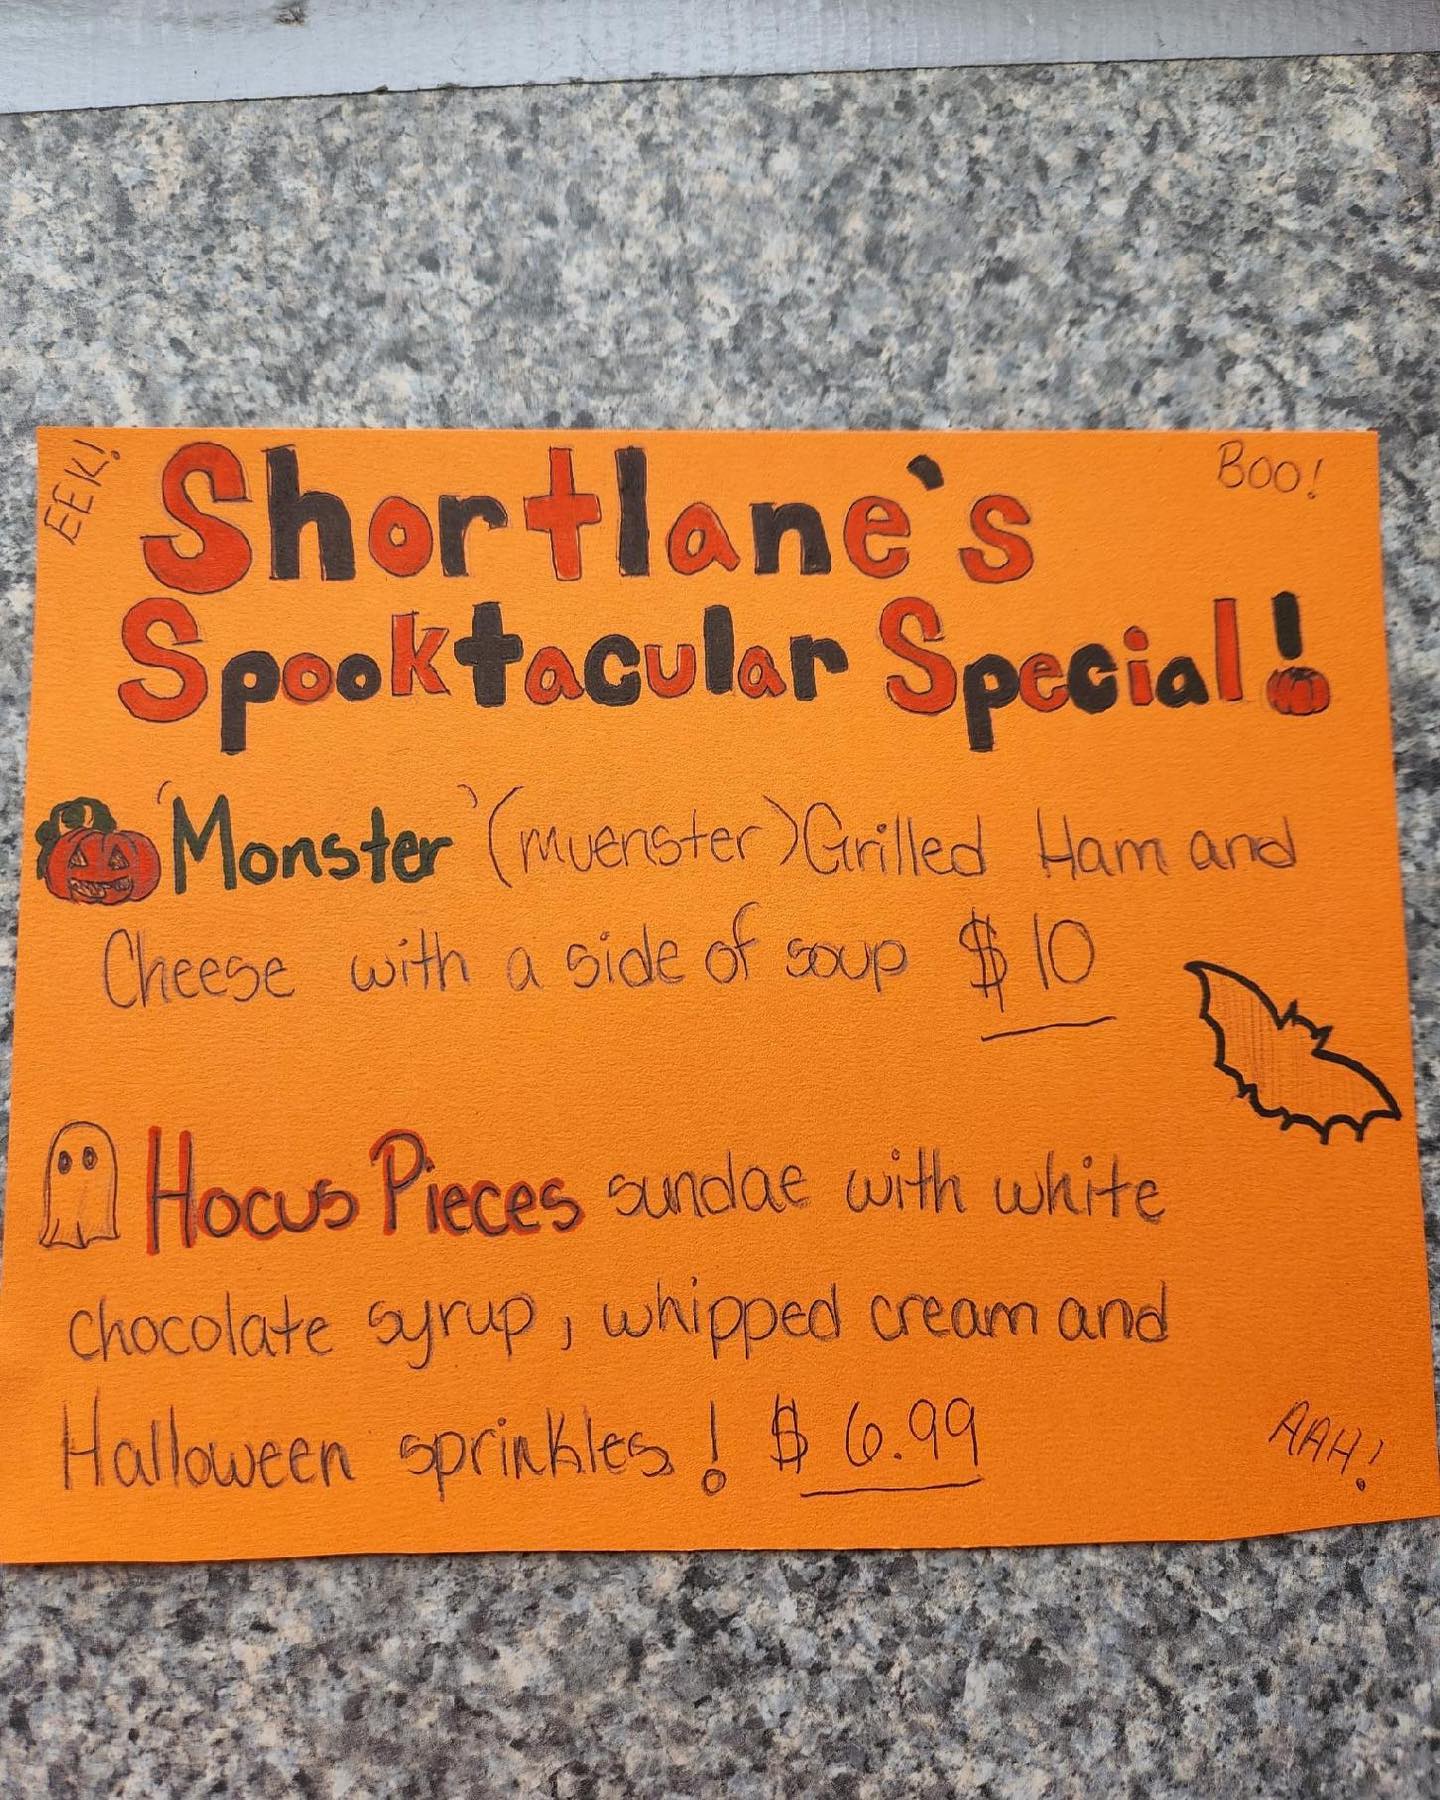 EEK!
BOO!
Shortlane's
Spooktacular Special!
'Monster' (muenster) Grilled Ham and
Cheese with a side of soup $10
Hocus Pieces sundae with white
chocolate syrup, whipped cream and
Halloween sprinkles! $6.99
AAH!